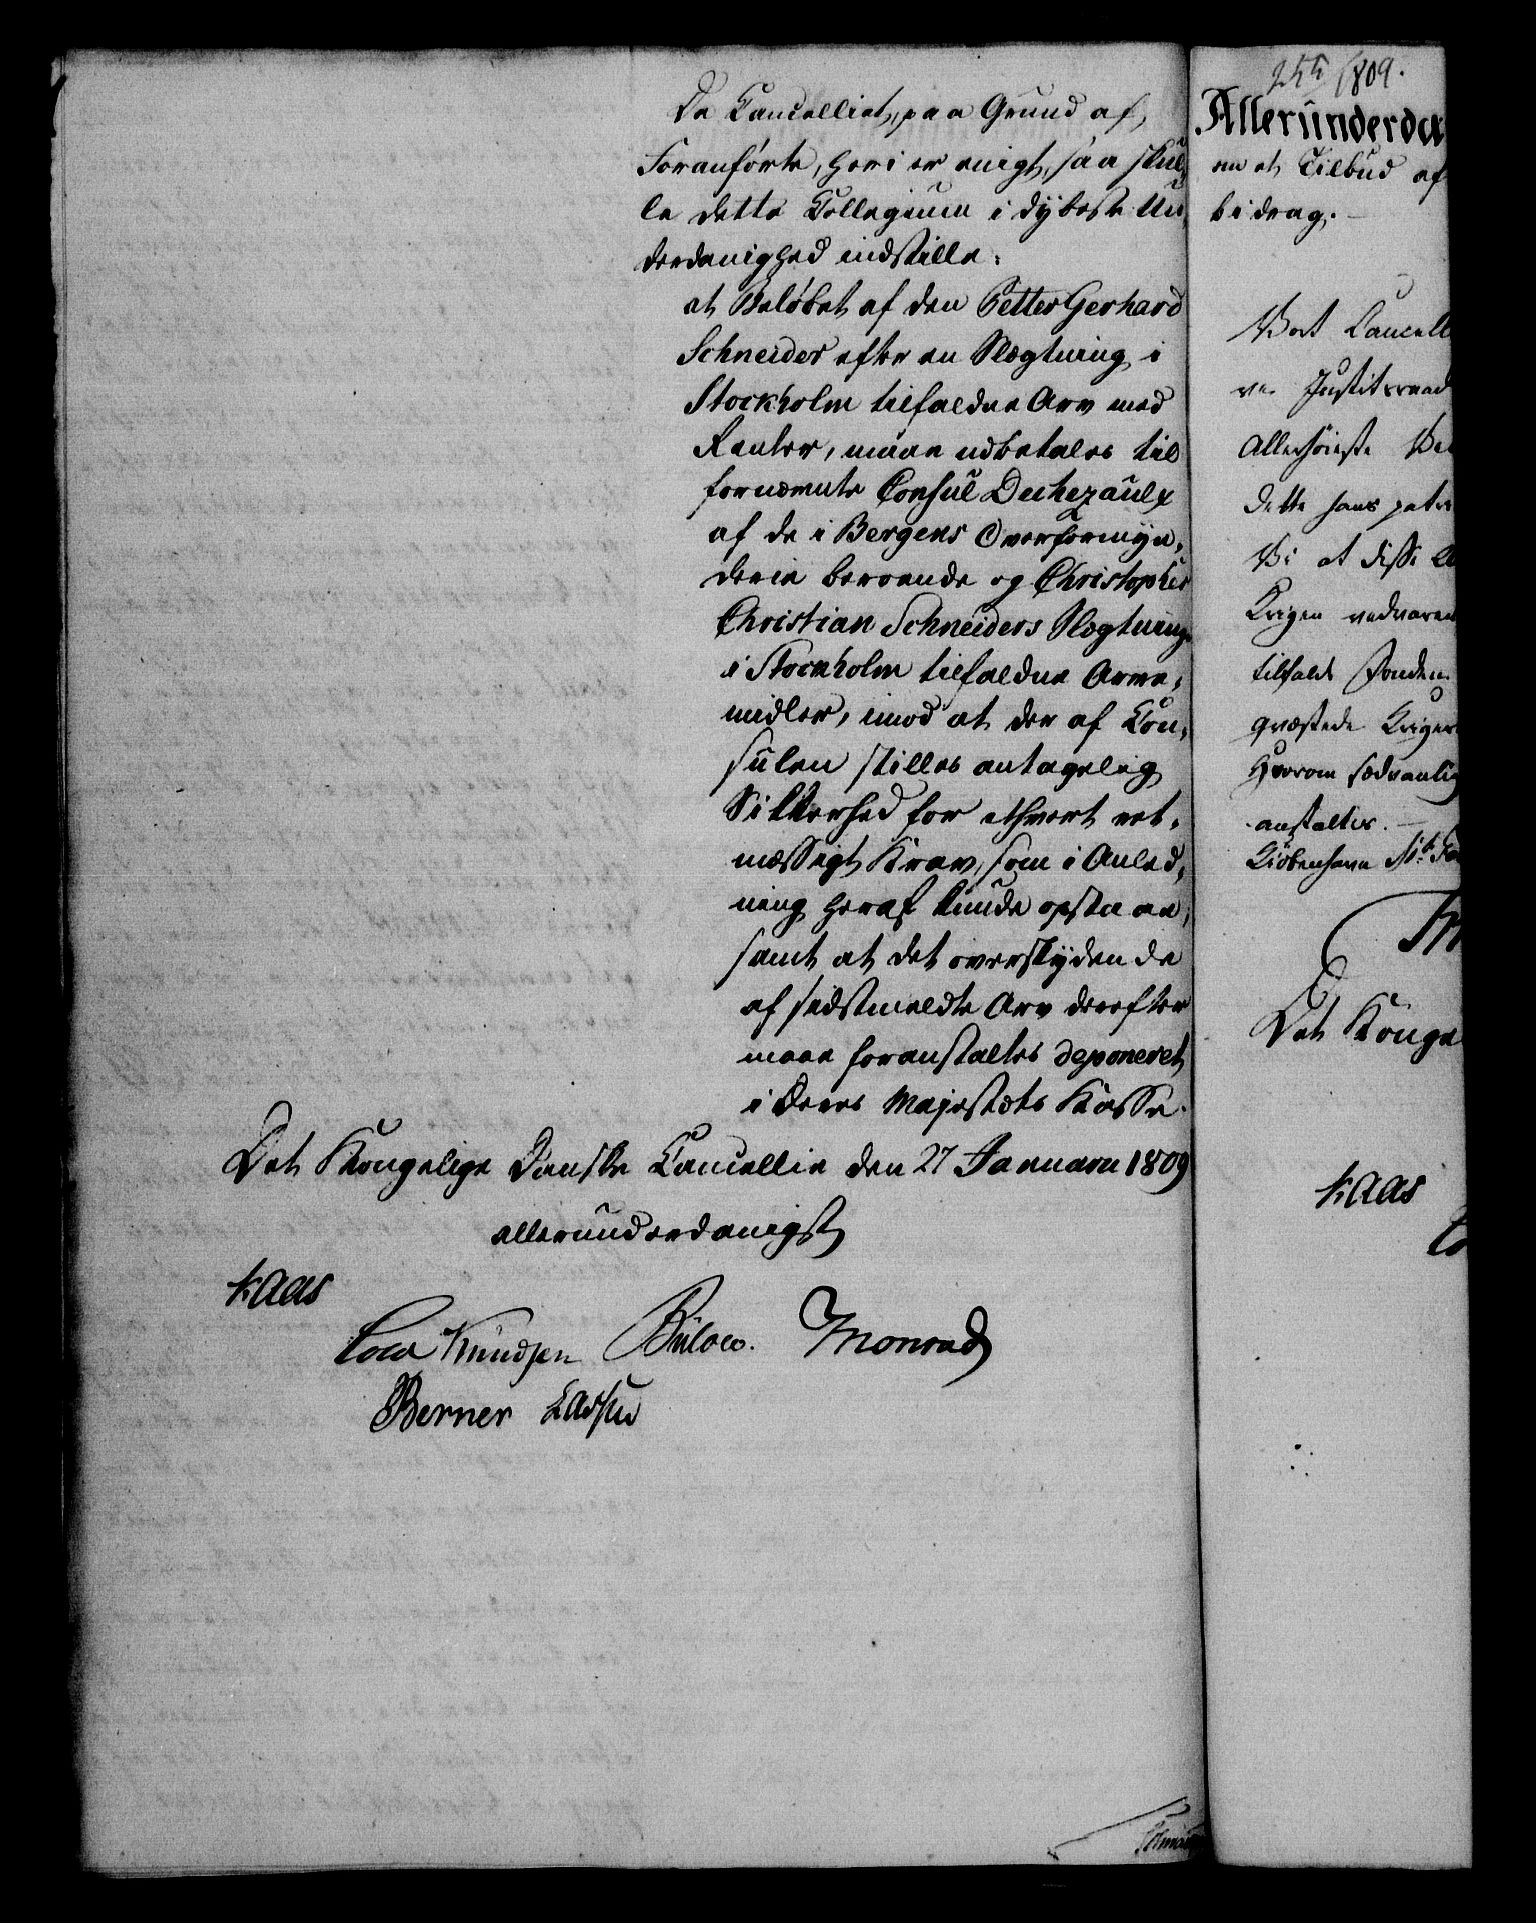 Da Cancelliet, paa Grund af
Foranførte, heri er enigt, saa skul-
le dette Collegium i dybeste Un-
derdanighed indstille:
at Beløbet af den Petter Gerhard
Schneider efter en Slægtning i
Stockholm tilfaldne Arv med
Renter, maae udbetales til
fornævnte Consul Dechezaulx
af de i Bergens Overformyn-
derie beroende og Christopher
Christian Schneiders Slægtninge
i Stockholm tilfaldne Arve-
midler, imod at der af Con-
sulen stilles antagelig
Sikkerhed for ethvert ret-
mæssigt Krav, som i Anled-
ning heraf kunde opstaae,
samt at det overskydende
af sidstmeldte Arv derefter
maae foranstaltes deponeret
i Deres Majestæts Kasse.
Det Kongelige Danske Cancellie den 27 Januarii 1809
allerunderdanigst
Kaas
Cold Knudsen Bülow. Monrad
Berner Lassen
1809.
Allerunderda
om et Tilbud af
bidrag.
Vort Cancell
Justitsraad
Allerhøieste
dette hans patri
Vi at disse
Krigen vedvaren
tilfalde Fonden
qvæstede Kriger
Hvorom sædvanlig
anstaltes.
Kiøbenhavn
Det Konge
Kaas
Co